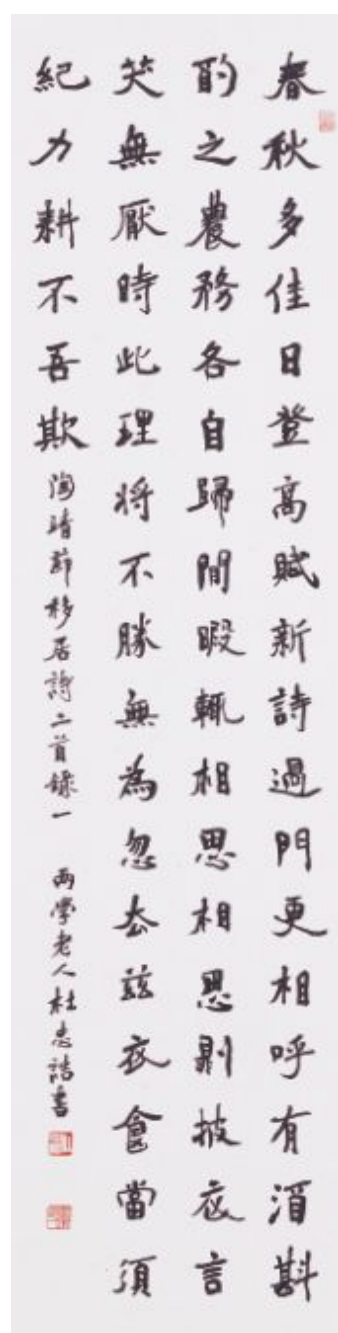 春秋多佳日登高賦新詩過門更相呼有酒斟
酌之農務各自歸間暇輒相思相思則披衣言
笑無厭時此理将不勝無為忽去茲衣食當須
紀力耕不吾欺 陶靖節移居詩二首錄一 兩學老人杜忠誥書